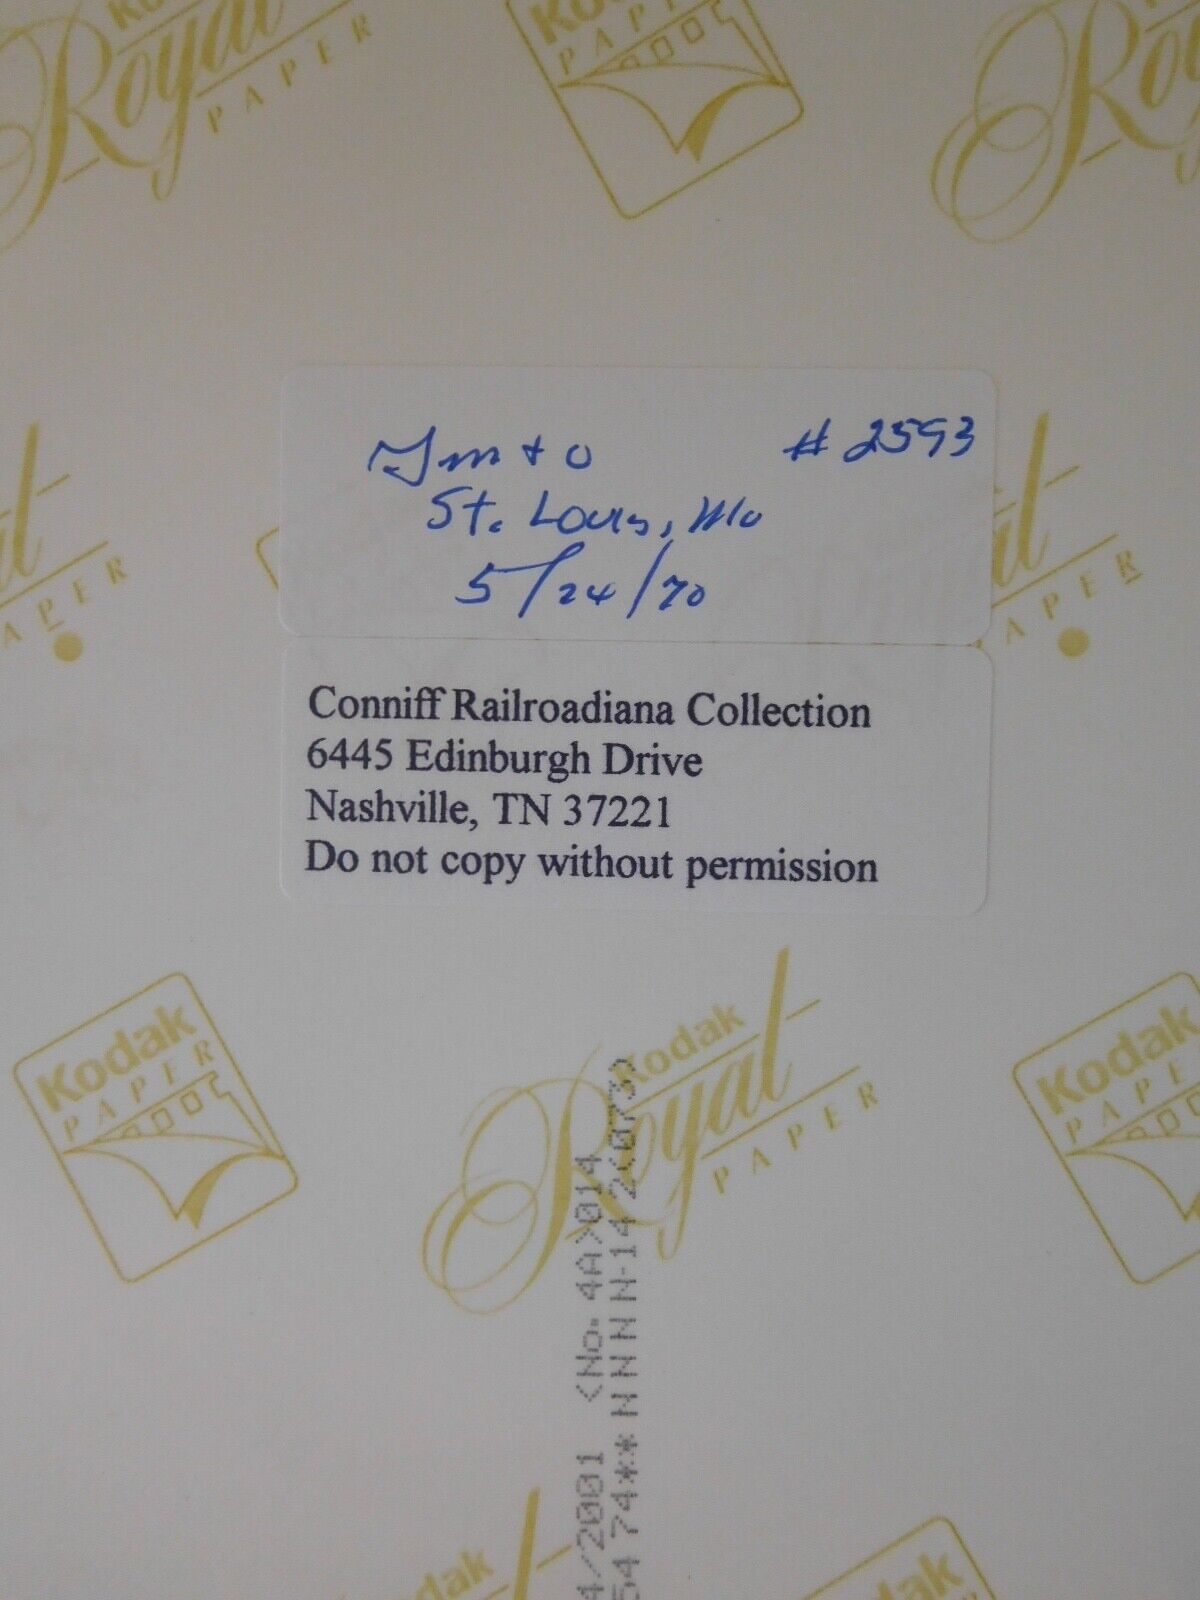 Kodak
Royal
PAPER
Kodak
PAPER
Royal
PAPER
Gm+o #2593
St. Louis, Mo
5/24/70
Conniff Railroadiana Collection
6445 Edinburgh Drive
Nashville, TN 37221
Do not copy without permission
Kodak
PAPER
Kodak
Royal
PAPER
Kodak
PAPER
4/2001 <No. 4A>014
5474** NNN N-14 2<073>